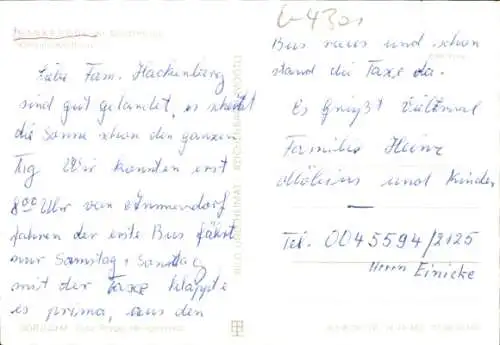 L-4301
Liebe Fam. Hackenberg
sind gut gelandet, es scheint
die Sonne schon den ganzen
Tag Wir konnten erst
8 00 Uhr von Ammendorf
fahren der erste Bus fährt
nur Samstag, Sonntag
mit der Taxe klappte
es prima, aus den
Bus raus und schon
stand die Taxe da.
Es grüßt vielmal
Familie Heinz
und Kinder
Tel. 0045594/2125
Herrn Einicke
BILD UND HEIMAT REICHENBACH (VOGTL)